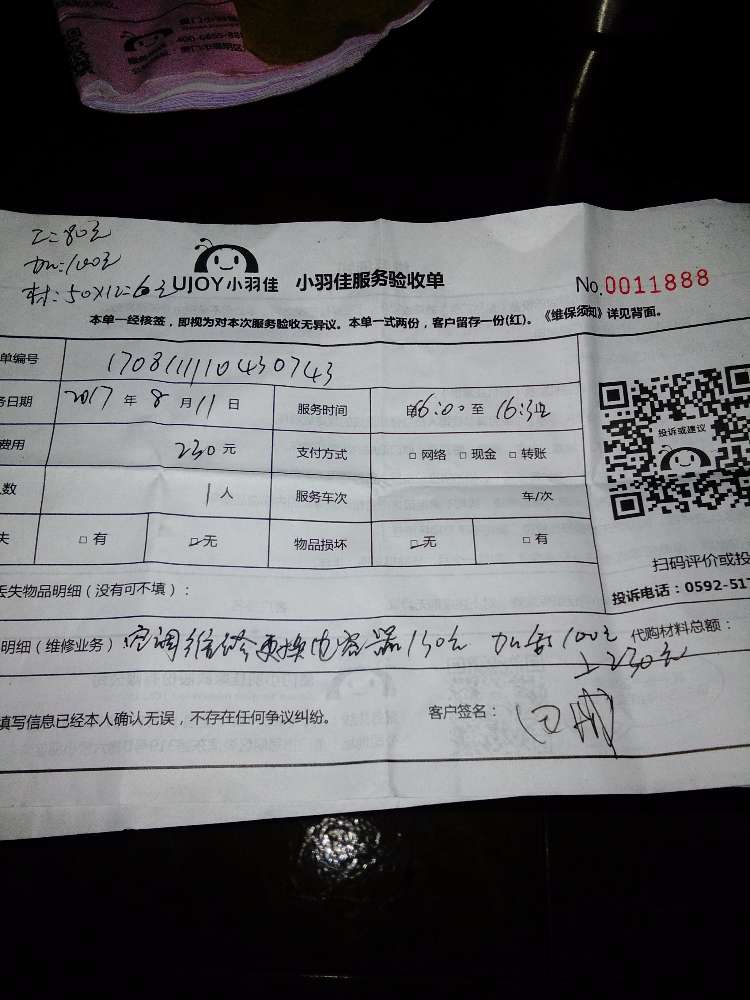 400-6655-88
工:80元
加:100元
材:50X1.2=60元
UJOY小羽佳 小羽佳服务验收单
No.0011888
本单一经核签，即视为对本次服务验收无异议。本单一式两份，客户留存一份(红)。《维保须知》详见背面。
单编号
务日期 2017 年 8 月 11 日 服务时间 16:00 至
费用 230 元 支付方式 □ 网络 □ 现金 □ 转账
人数 1 人 服务车次 车/次
失 □ 有 □ 无 物品损坏 □ 无 □ 有
投诉或建议
扫码评价或投
投诉电话：0592-517
丢失物品明细（没有可不填）：
明细（维修业务） 空调维修更换电容器130元 加氟100元 代购材料总额：
上230元
填写信息已经本人确认无误，不存在任何争议纠纷。 客户签名：